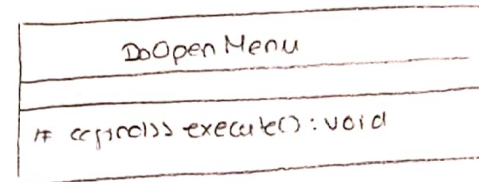 DoOpenMenu
# <<final>> execute() : void